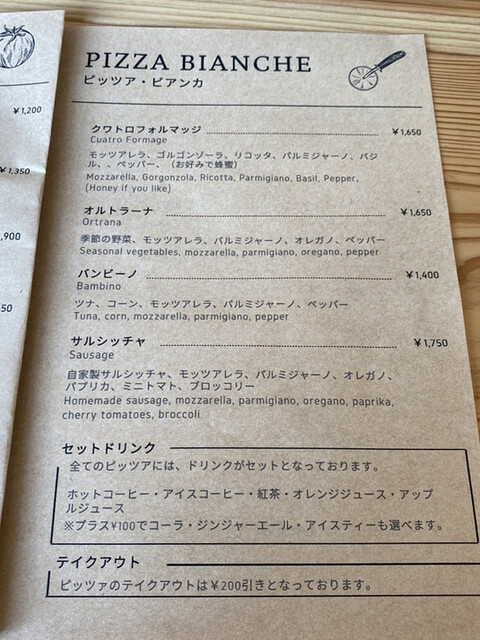 PIZZA BIANCHE
ピッツア・ビアンカ
クワトロフォルマッジ ¥1,650
Cuatro Formage
モッツアレラ、ゴルゴンゾーラ、リコッタ、パルミジャーノ、バジ
ル、、ペッパー、（お好みで蜂蜜）
Mozzarella, Gorgonzola, Ricotta, Parmigiano, Basil, Pepper,
(Honey if you like)
オルトラーナ ¥1,650
Ortrana
季節の野菜、モッツアレラ、パルミジャーノ、オレガノ、ペッパー
Seasonal vegetables, mozzarella, parmigiano, oregano, pepper
バンビーノ ¥1,400
Bambino
ツナ、コーン、モッツアレラ、パルミジャーノ、ペッパー
Tuna, corn, mozzarella, parmigiano, pepper
サルシッチャ ¥1,750
Sausage
自家製サルシッチャ、モッツアレラ、パルミジャーノ、オレガノ、
パプリカ、ミニトマト、ブロッコリー
Homemade sausage, mozzarella, parmigiano, oregano, paprika,
cherry tomatoes, broccoli
セットドリンク
全てのピッツアには、ドリンクがセットとなっております。
ホットコーヒー・アイスコーヒー・紅茶・オレンジジュース・アップ
ルジュース
※プラス¥100でコーラ・ジンジャーエール・アイスティーも選べます。
テイクアウト
ピッツァのテイクアウトは¥200引きとなっております。
¥1,200
¥1,350
,900
50